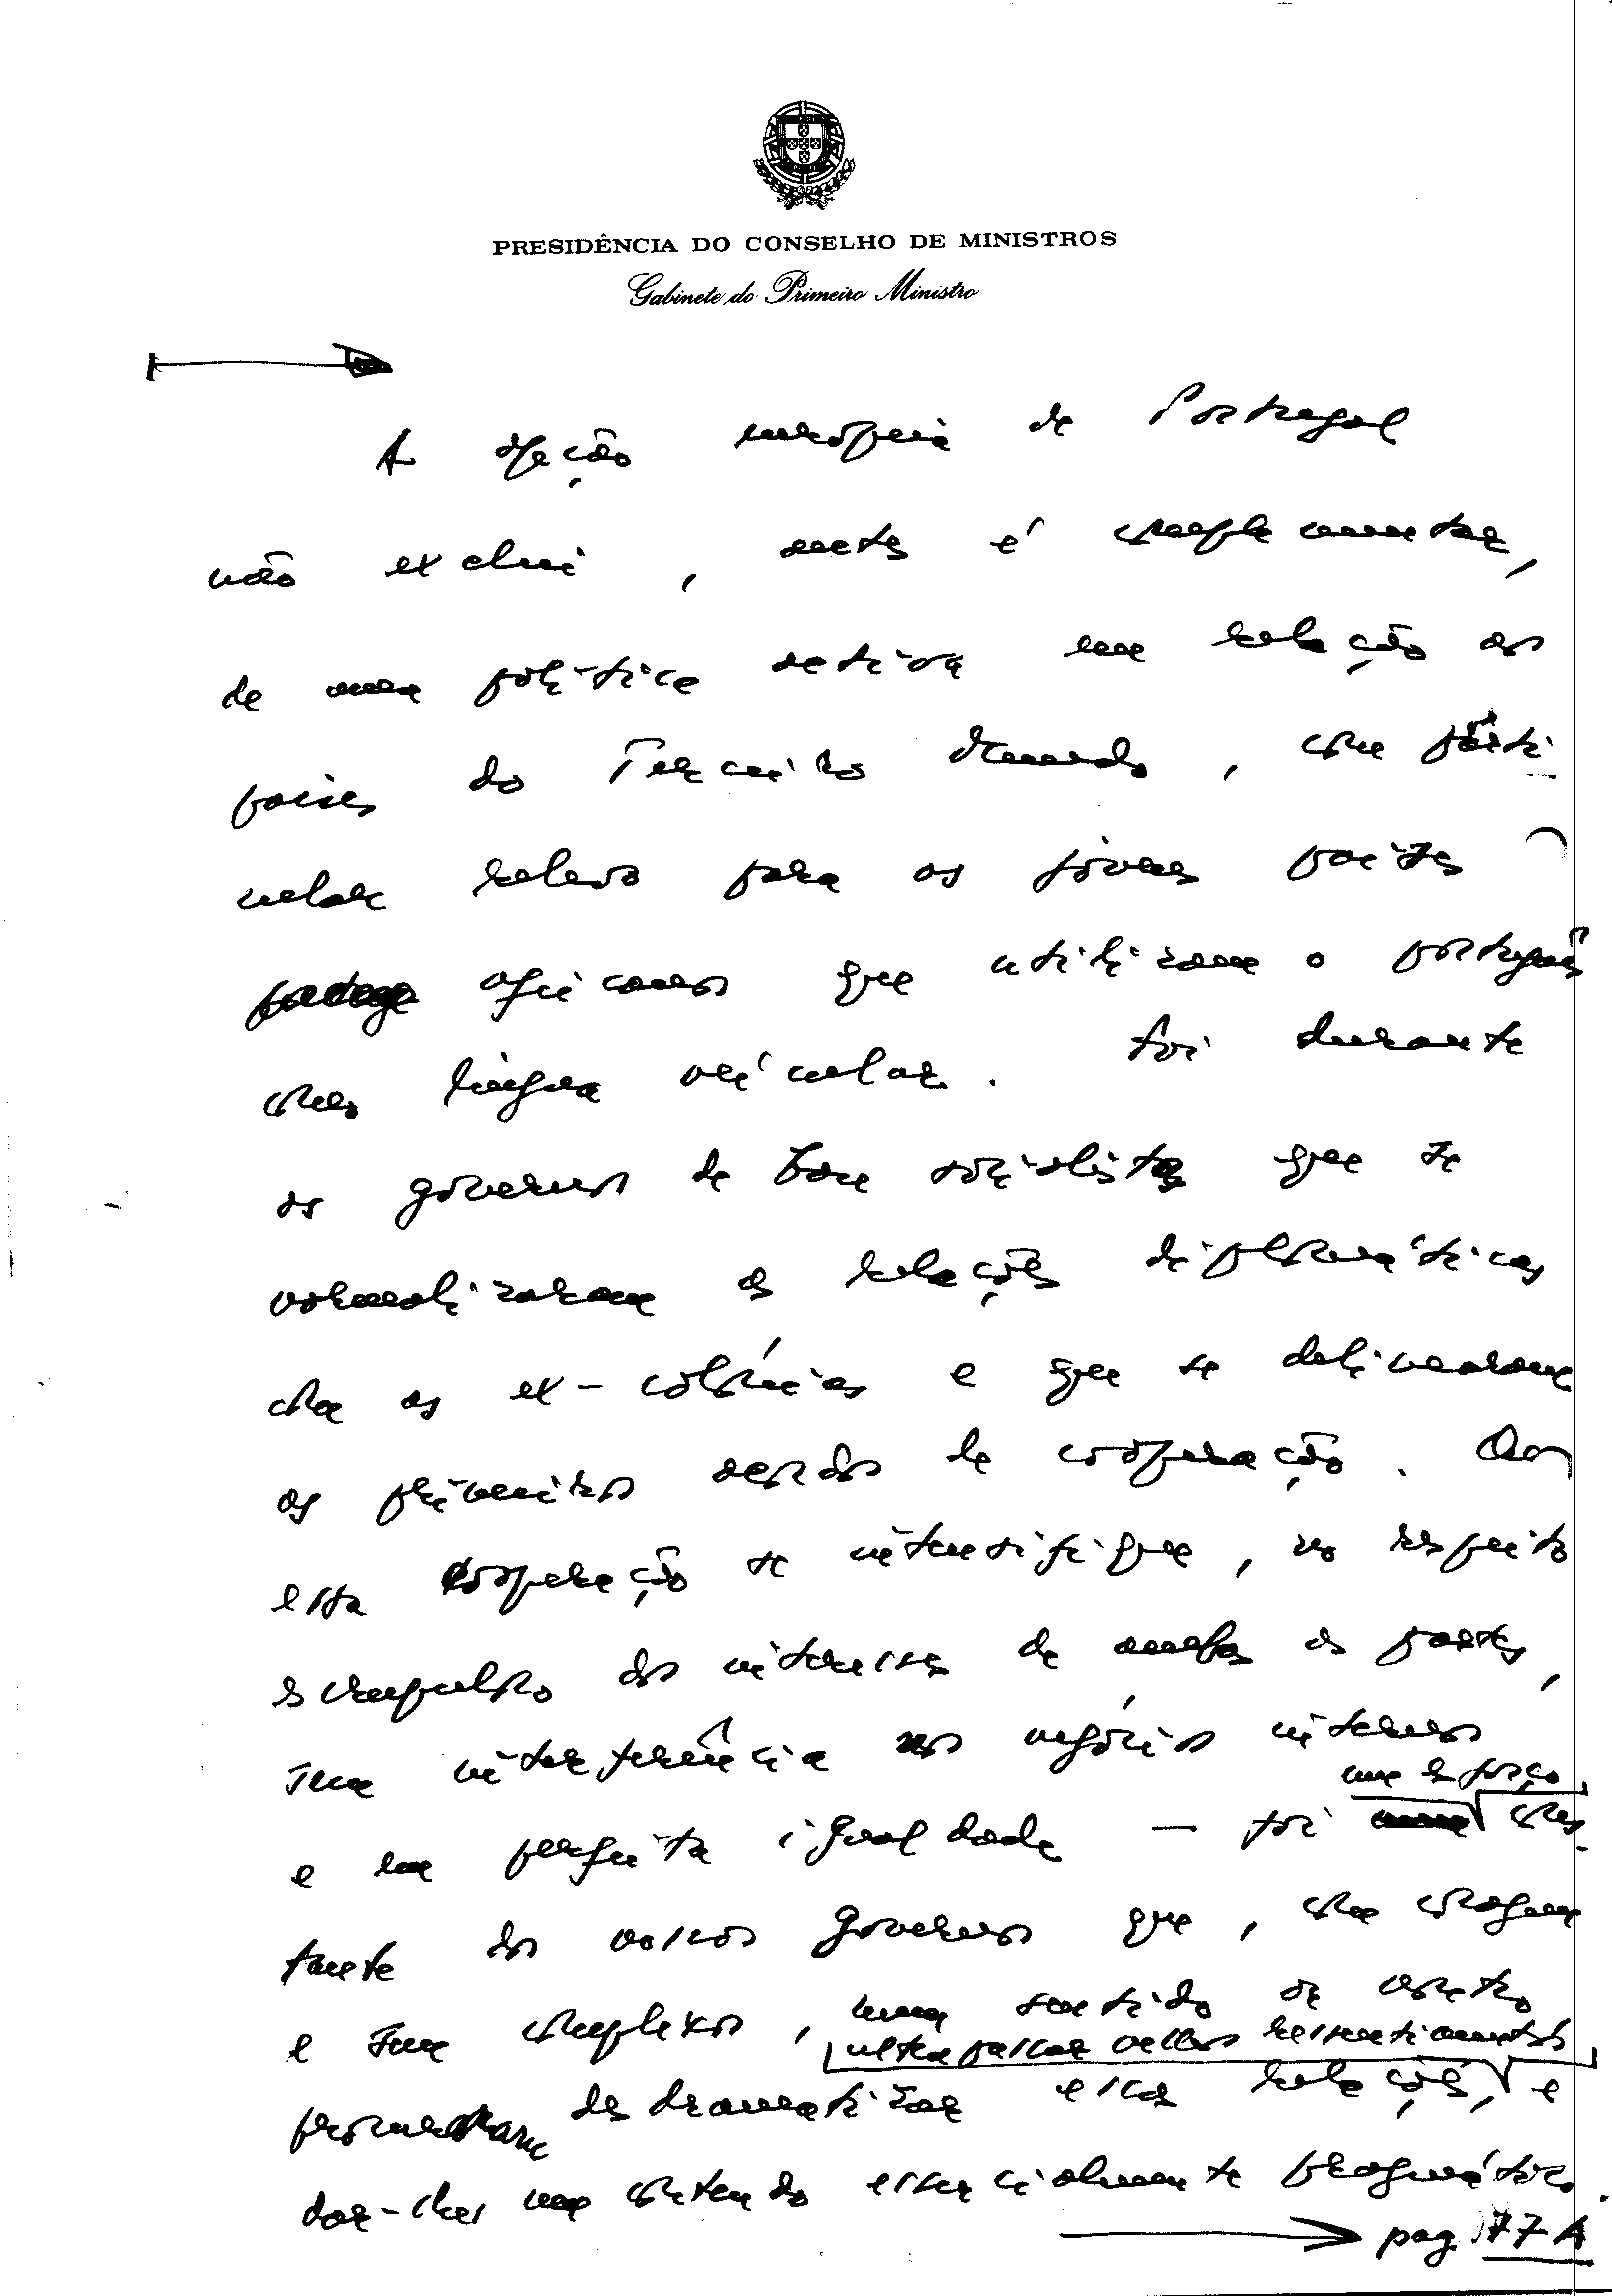 PRESIDÊNCIA DO CONSELHO DE MINISTROS
Gabinete do Primeiro Ministro
A opção europeia de Portugal
não exclui, antes é complementar,
de uma política activa em relação aos
países do Terceiro Mundo, com parti-
cular relevo para os jovens países
africanos que utilizam o português
como língua veícular. Foi durante
os governos de base socialista que se
normalizaram as relações diplomáticas
com as ex-colónias e que se delinearam
os primeiros acordos de cooperação. Que
essa cooperação se intensifique, no respeito
escrupuloso dos interesses de ambas as partes,
sem interferência nos negócios internos
um esforço
e em perfeita igualdade — foi cons-
tante dos nossos governos que, com coragem
e sem complexos, num sentido de
ultrapassar velhos ressentimentos
procuraram desdramatizar essas relações, e
dar-lhes um conteúdo essencialmente pragmático.
pag. 77 A